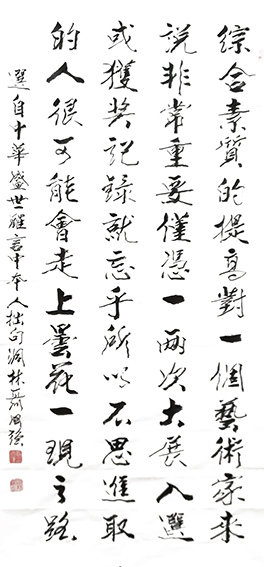 綜合素質的提高對一個藝術家来
説非常重要僅憑一兩次大展入選
或獲奖記録就忘乎所以不思進取
的人很可能會走上曇花一現之路
選自中華盛世雅言中本人拙句洞林聶国強